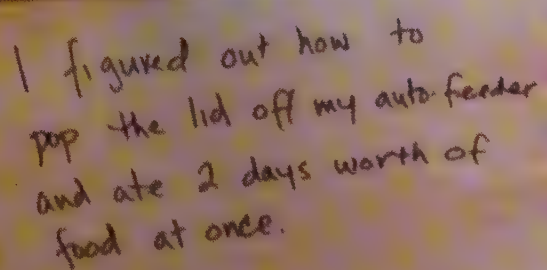 I figured out how to
pop the lid off my auto-feeder
and ate 2 days worth of
food at once.